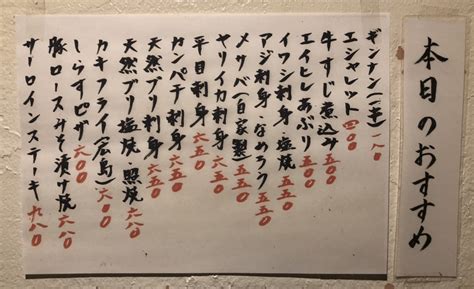 本日のおすすめ
ギンナン(一串) 一八〇
エシャレット 四〇〇
牛すじ煮込み 五〇〇
エイヒレあぶり 五〇〇
イワシ刺身・塩焼 五五〇
アジ刺身・なめろう 五五〇
メサバ(自家製) 五五〇
ヤリイカ刺身 五五〇
平目刺身 六五〇
カンパチ刺身 六五〇
天然ブリ刺身 六五〇
天然ブリ塩焼・照焼 六八〇
カキフライ(広島) 六〇〇
しらすピザ 六〇〇
豚ロースみそ漬け焼 六八〇
サーロインステーキ 九八〇